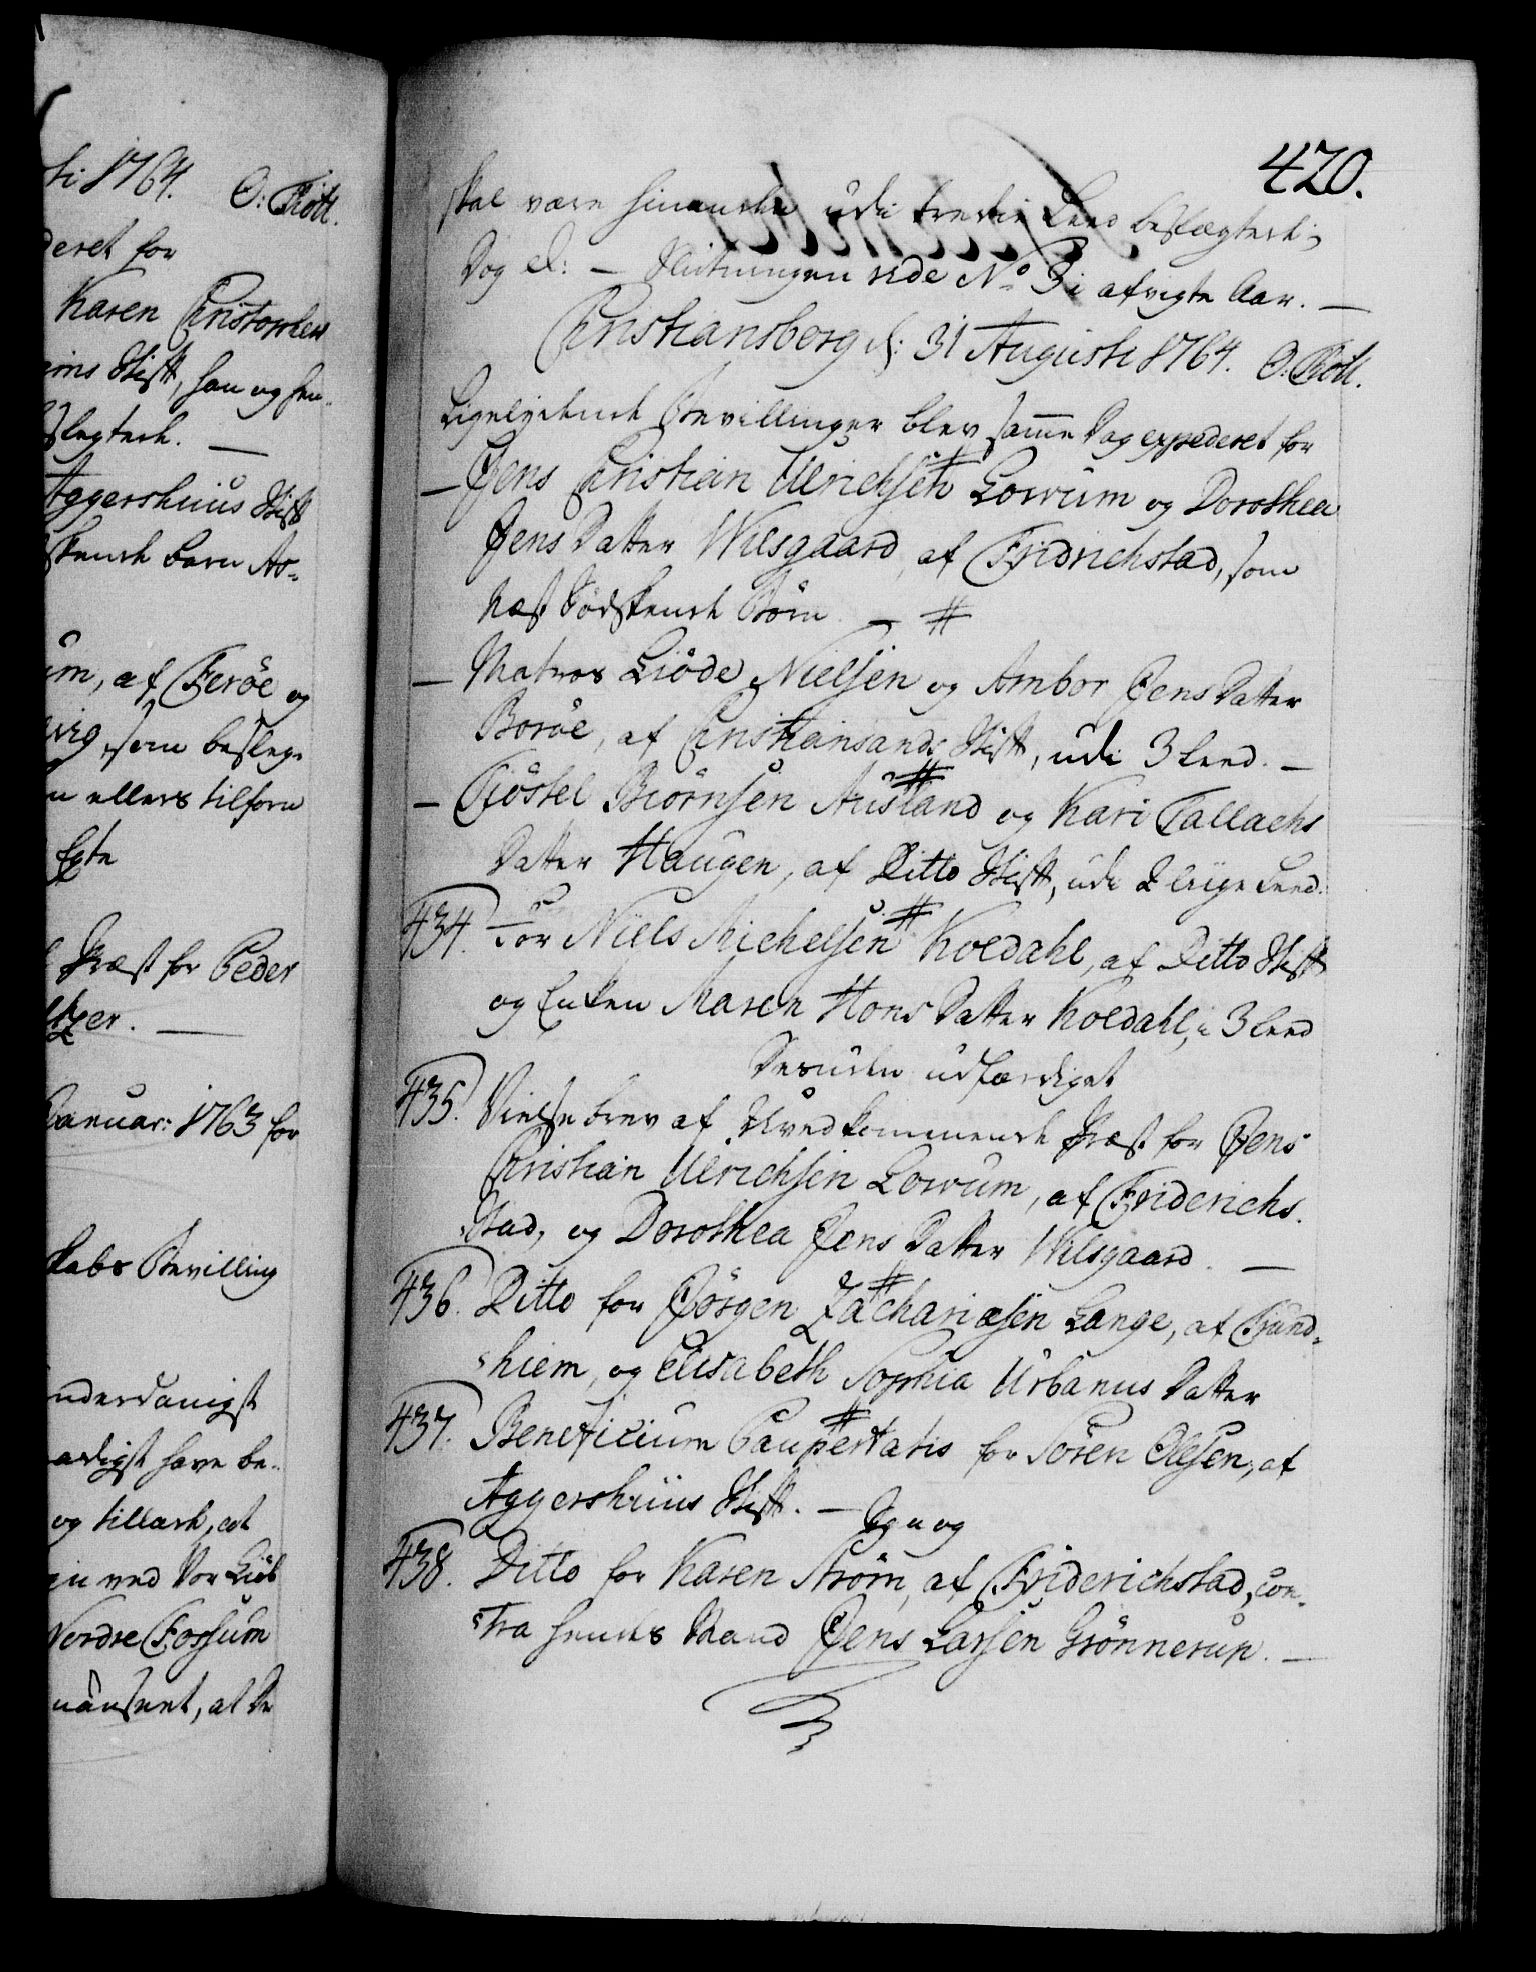 ti 1764. O: Thott.
deret for
Karen Christophers
Stift, han og hen-
slegtede. —
Aggershuus Stift
skende barn
um, af Ferøe og
vig, som besleg-
ellers tilforn
Egte
Præst for Peder
tzer. —
Januar: 1763 for
skabs Bevilling
underdanigst
have be-
og tillade, at
ved Vor
Nordre Fossum
at De
420.
skal være hinanden udi tredie Leed beslægtede;
Dog &: — Slutningen vide No 3 i afvigte Aar. —
Christiansborg d: 31 Augusti 1764. O. Thott.
Ligelydende Bevillinger blev samme Dag expederet for
— Jens Christian Ulrichsen Lowum og Dorothea
Jens Datter Wilsgaard, af Fridrichstad, som
Næst Sødskende Børn. — #
— Matros Liøde Nielsen og Ambor Jens Datter
Borøe, af Christiansands Stift, udi 3 Leed. —
— Tiøstel Biørnsen Ausland og Kari Tallachs
Datter Haugen, af Ditto Stift, udi 2 liige Leed.
434. For Niels Michelsen Koldahl, af Ditto Stift
og Enken Maren Hans Datter Koldahl, i 3 Leed
Desuden udfærdiget
435. Vielse brev af Uvedkommende Præst for Jens
Christian Ulrichsen Lowum, af Friderich-
Stad, og Dorothea Jens Datter Wilsgaard. —
436. Ditto for Jørgen Zachariæsen Lange, af Trund-
hiem, og Elisabeth Sophia Urbanus Datter
437. Beneficium Paupertatis for Søren Olesen, af
Aggershuus Stift. —
438. Ditto for Karen Strøm, af Friderichstad, con-
tra hendes Mand Jens Larsen Grønnerup. —